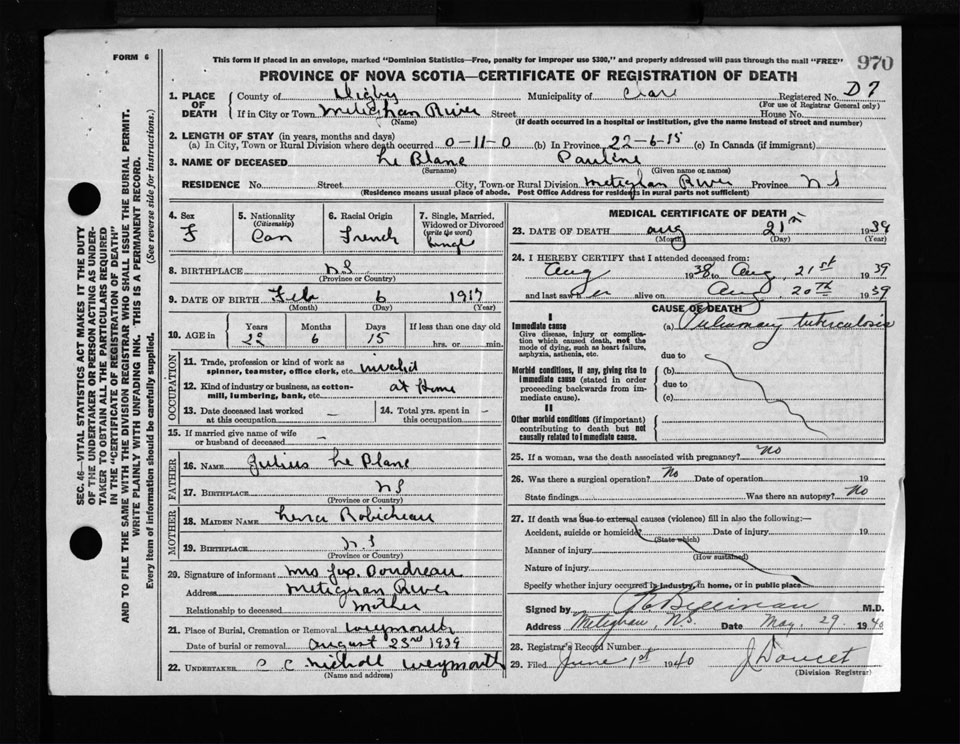 FORM 6
This form if placed in an envelope, marked "Dominion Statistics—Free, penalty for improper use $300," and properly addressed will pass through the mail "FREE"
970
PROVINCE OF NOVA SCOTIA—CERTIFICATE OF REGISTRATION OF DEATH
1. PLACE OF DEATH
County of Digby Municipality of Clare Registered No. D 7
(For use of Registrar General only)
If in City or Town Meteghan River Street House No.
(Name) (If death occurred in a hospital or institution, give the name instead of street and number)
2. LENGTH OF STAY (in years, months and days)
(a) In City, Town or Rural Division where death occurred 0-11-0 (b) In Province 22-6-15 (c) In Canada (if immigrant)
3. NAME OF DECEASED Le Blanc Pauline
(Surname) (Given name or names)
RESIDENCE No. Street City, Town or Rural Division Meteghan River Province NS
(Residence means usual place of abode. Post Office Address for residents in rural parts not sufficient)
4. Sex
F
5. Nationality
(Citizenship)
Can
6. Racial Origin
French
7. Single, Married, Widowed or Divorced
(write the word)
Single
8. BIRTHPLACE NS
(Province or Country)
9. DATE OF BIRTH Feb 6 1917
(Month) (Day) (Year)
10. AGE in
Years Months Days If less than one day old
22 6 15 hrs. or min.
OCCUPATION
11. Trade, profession or kind of work as spinner, teamster, office clerk, etc. invalid
12. Kind of industry or business, as cotton-mill, lumbering, bank, etc. at Home
13. Date deceased last worked at this occupation —
14. Total yrs. spent in this occupation —
15. If married give name of wife or husband of deceased —
FATHER
16. NAME Julius Le Blanc
17. BIRTHPLACE NS
(Province or Country)
MOTHER
18. MAIDEN NAME Robicheau
19. BIRTHPLACE N.S
(Province or Country)
20. Signature of informant Mrs Doudreau
Address Meteghan River
Relationship to deceased Mother
21. Place of Burial, Cremation or Removal Weymouth
Date of burial or removal August 23rd 1939
22. UNDERTAKER C Nicholl Weymouth
(Name and address)
MEDICAL CERTIFICATE OF DEATH
23. DATE OF DEATH Aug 21st 1939
(Month) (Day) (Year)
24. I HEREBY CERTIFY that I attended deceased from:
Aug 1938 to Aug, 21st 1939
and last saw her alive on Aug 20th 1939
CAUSE OF DEATH
I
Immediate cause
Give disease, injury or complication which caused death, not the mode of dying, such as heart failure, asphyxia, asthenia, etc.
(a) Pulmonary tuberculosis
due to
Morbid conditions, if any, giving rise to immediate cause (stated in order proceeding backwards from immediate cause).
(b)
due to
(c)
II
Other morbid conditions (if important) contributing to death but not causally related to immediate cause.
25. If a woman, was the death associated with pregnancy? No
26. Was there a surgical operation? No Date of operation 19
State findings Was there an autopsy? No
27. If death was due to external causes (violence) fill in also the following:—
Accident, suicide or homicide? Date of injury 19
(State which)
Manner of injury
(How sustained)
Nature of injury
Specify whether injury occurred in industry, in home, or in public place
Signed by M.D.
Address Meteghan, N.S. Date May. 29. 1940
28. Registrar's Record Number
29. Filed June 1st 1940 J Doucet
(Division Registrar)
SEC. 46—VITAL STATISTICS ACT MAKES IT THE DUTY OF THE UNDERTAKER OR PERSON ACTING AS UNDERTAKER TO OBTAIN ALL THE PARTICULARS REQUIRED IN THE "CERTIFICATE OF REGISTRATION OF DEATH" AND TO FILE THE SAME WITH THE DIVISION REGISTRAR WHO SHALL ISSUE THE BURIAL PERMIT.
WRITE PLAINLY WITH UNFADING INK. THIS IS A PERMANENT RECORD.
Every item of information should be carefully supplied. (See reverse side for instructions.)